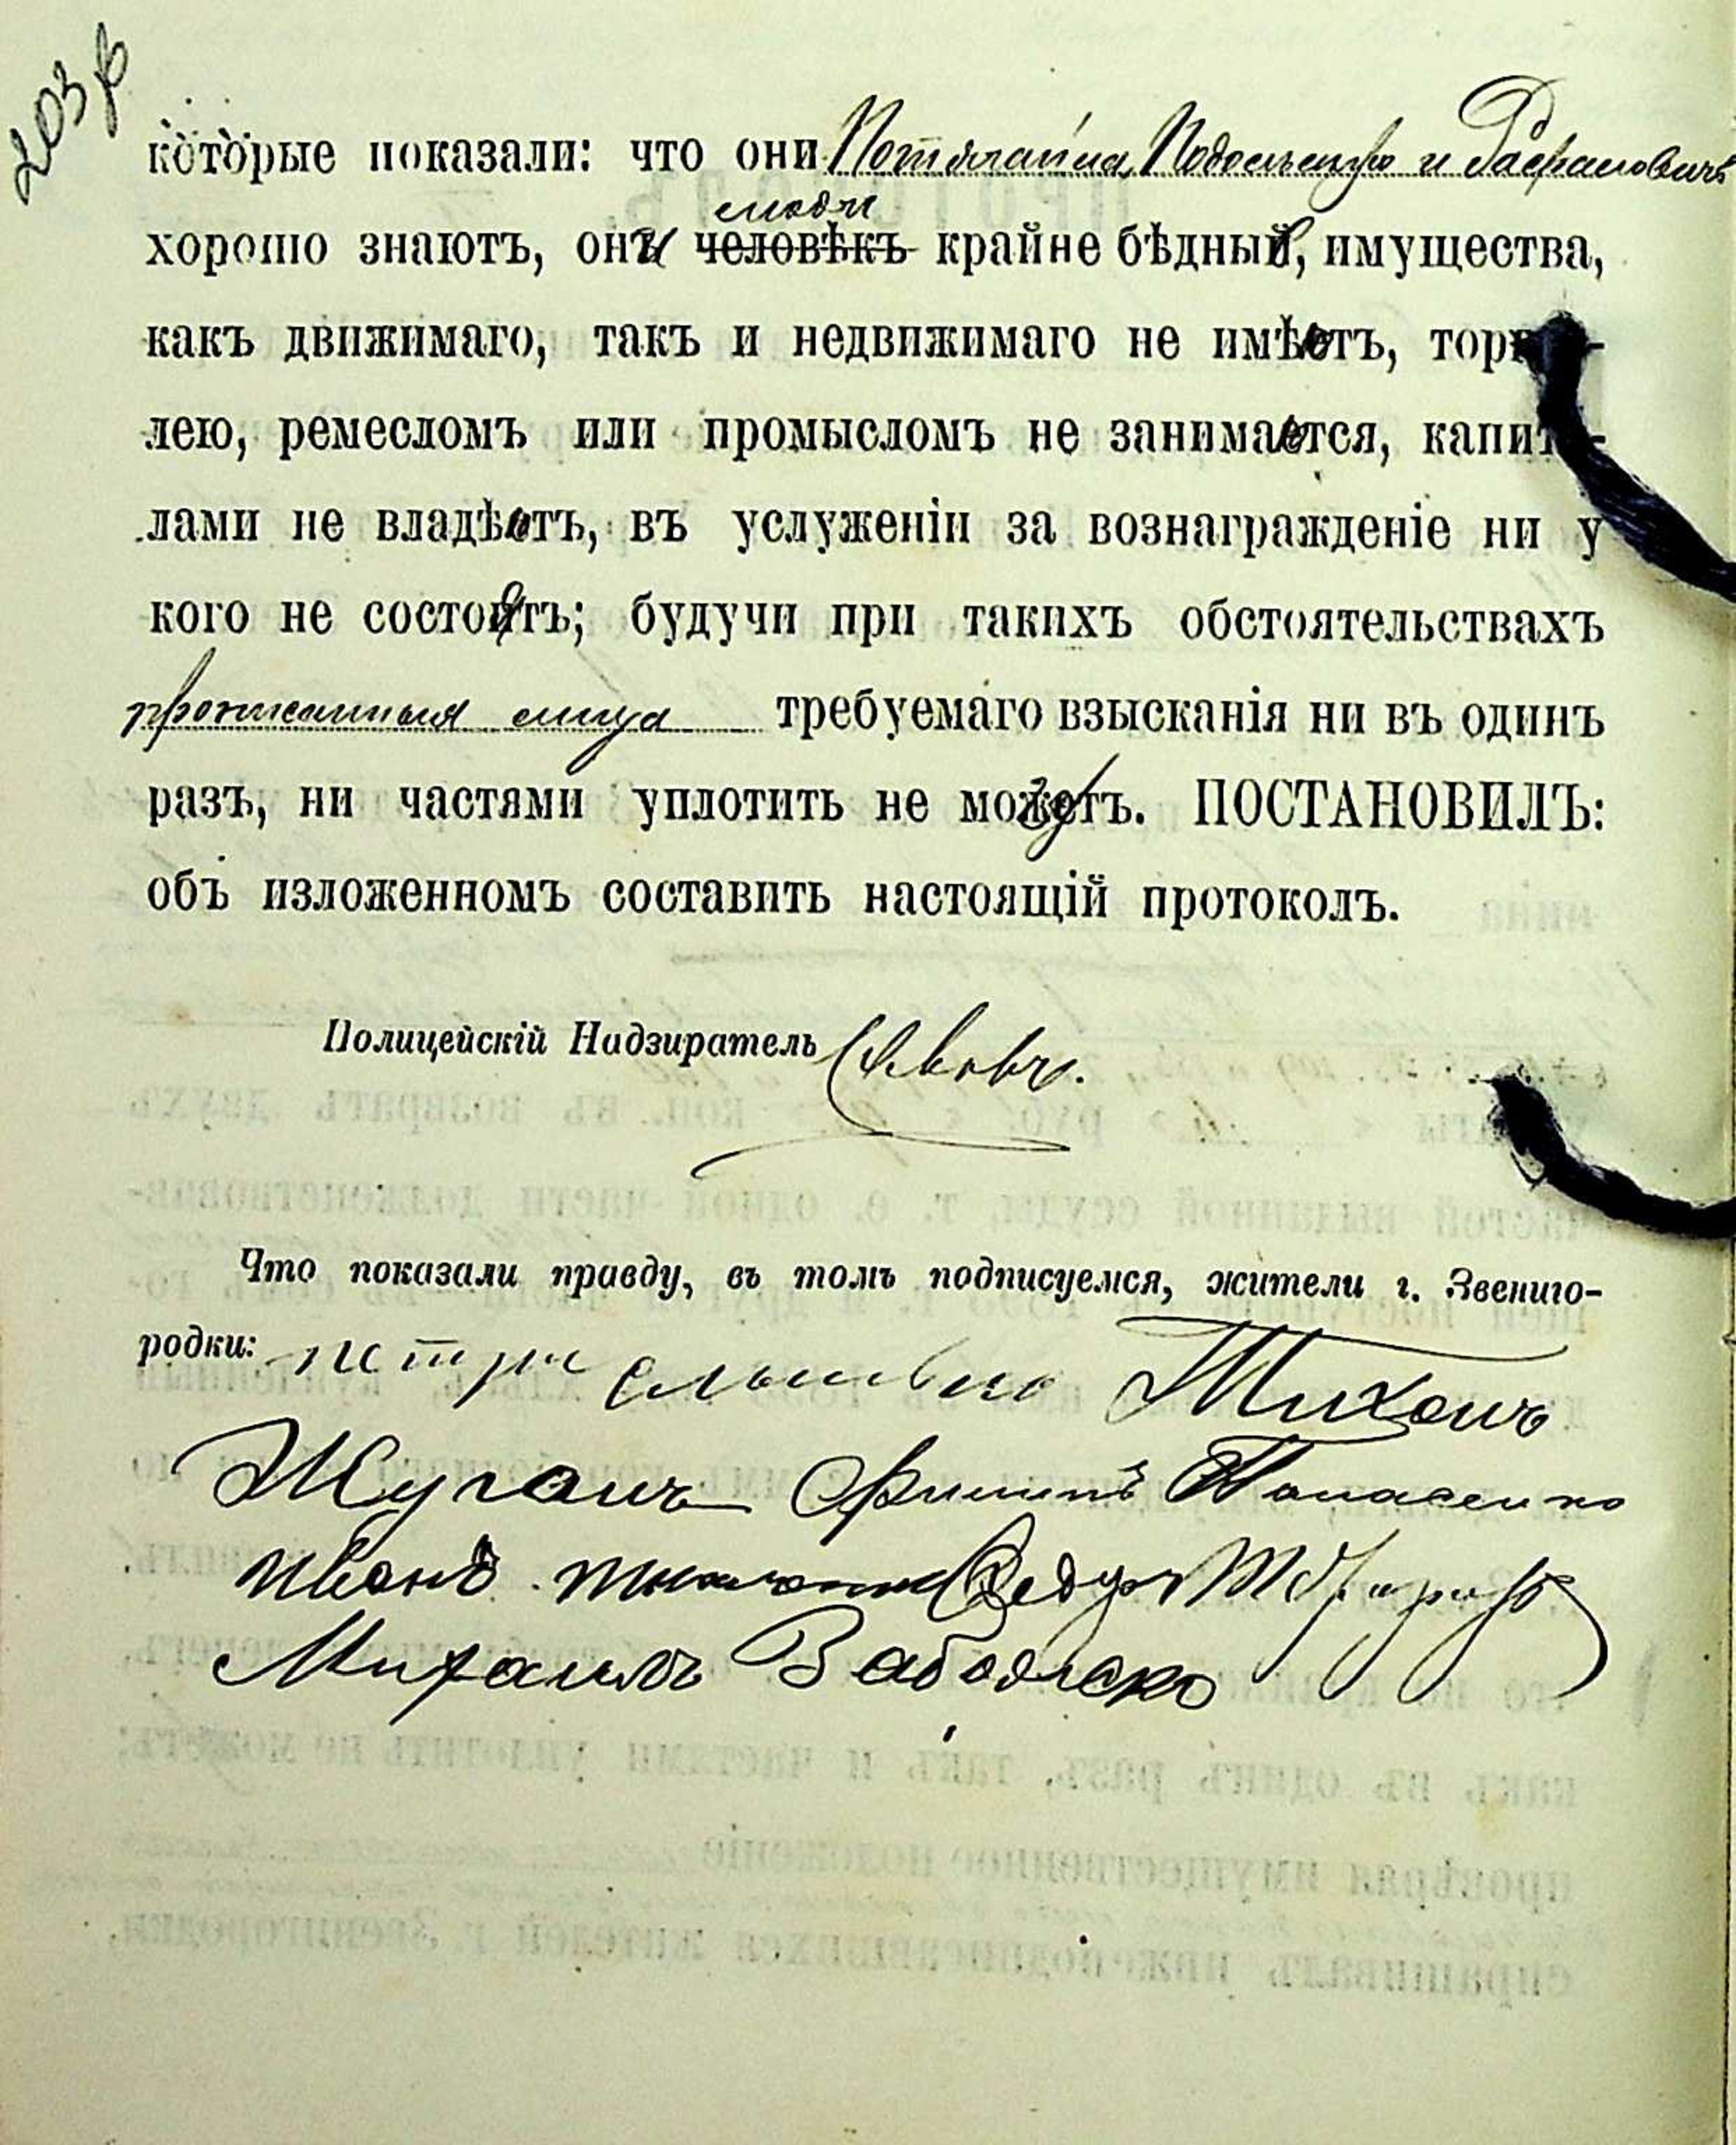 203 в
которые показали: что они и
люди
хорошо знаютъ, они человѣкъ крайне бѣдные, имущества,
какъ движимаго, такъ и недвижимаго не имѣютъ, торгов-
лею, ремесломъ или промысломъ не занимаются, капита-
лами не владѣютъ, въ услуженіи за вознагражденіе ни у
кого не состоятъ; будучи при такихъ обстоятельствахъ
лица требуемаго взысканія ни въ одинъ
разъ, ни частями уплотить не могутъ. ПОСТАНОВИЛЪ:
объ изложенномъ составить настоящій протоколъ.
Полицейскій Надзиратель
Что показали правду, въ томъ подписуемся, жители г. Звениго-
родки: Тихонъ
Жуганъ Филипъ Панасенко
иванъ
Михаилъ